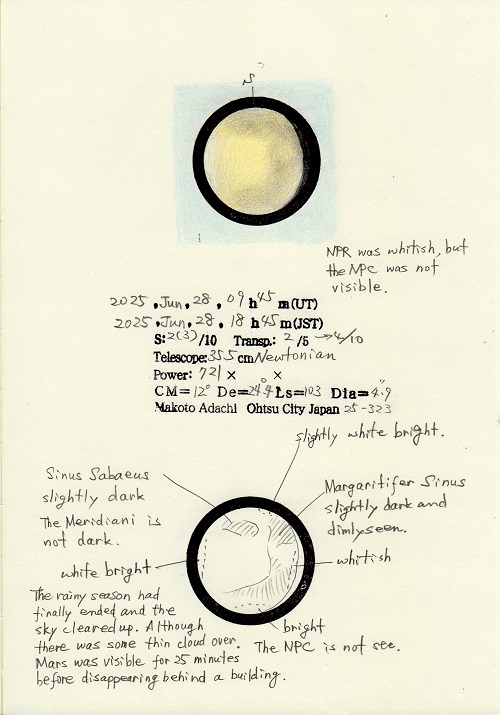 S
NPR was whitish, but
the NPC was not
visible.
2025, Jun, 28, 09 h 45 m (UT)
2025, Jun, 28, 18 h 45 m (JST)
S: 2(3)/10 Transp.: 2/5 → 4/10
Telescope: 355 cm Newtonian
Power: 721 × ×
CM= 12° De= 24.4° Ls= 103 Dia= 4.″9
Makoto Adachi Ohtsu City Japan 25-323
slightly white bright.
Sinus Sabaeus
slightly dark
The Meridiani is
not dark.
Margaritifer Sinus
slightly dark and
dimly seen.
white bright
whitish
The rainy season had
finally ended and the
sky cleared up. Although
there was some thin cloud over.
Mars was visible for 25 minutes
before disappearing behind a building.
bright
The NPC is not see.